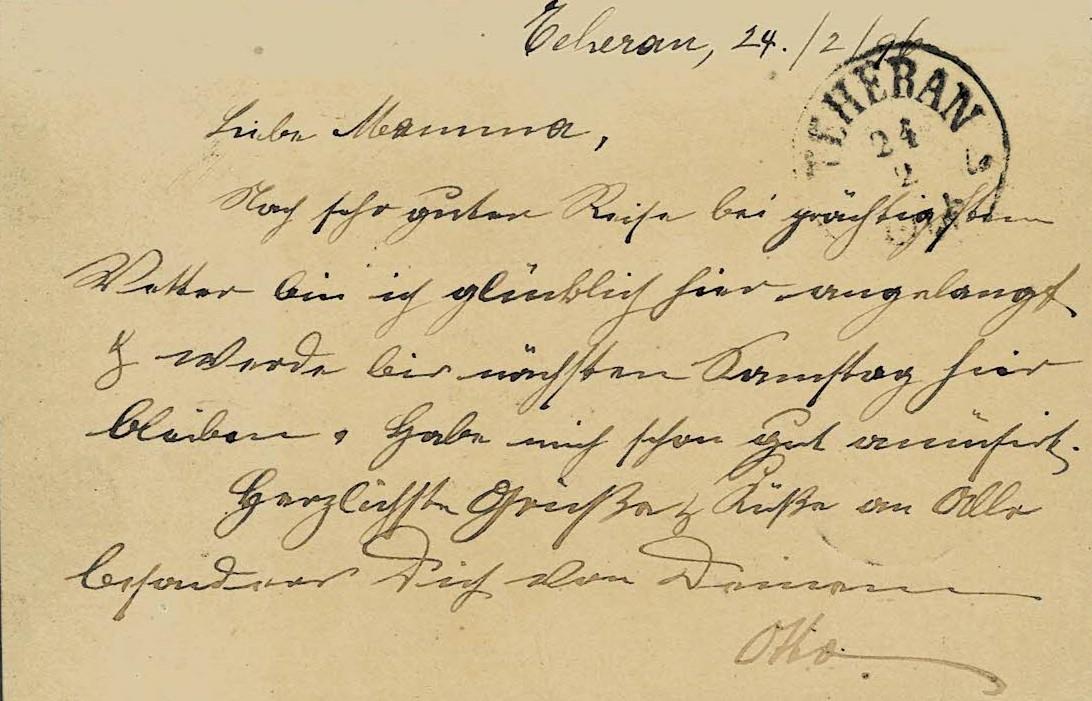 Teheran, 24./2/96
TEHERAN
24
2
Liebe Mamma,
Nach sehr guter Reise bei prächtigstem
Wetter bin ich glücklich hier angelangt
& werde bis nächsten Samstag hier
bleiben. Habe mich schon gut amüsirt.
Herzlichste Grüße & Küße an Alle
besonders Dich von Deinem
Otto